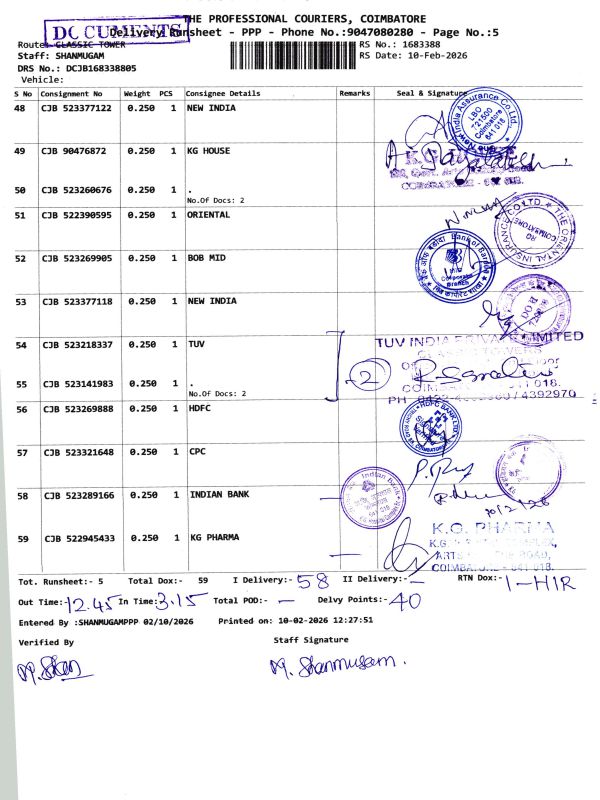 THE PROFESSIONAL COURIERS, COIMBATORE
DOCUMENTS
Delivery Runsheet - PPP - Phone No.:9047080280 - Page No.:5
Route: CLASSIC TOWER
RS No.: 1683388
Staff: SHANMUGAM
RS Date: 10-Feb-2026
DRS No.: DCJB168338805
Vehicle:
S No Consignment No Weight PCS Consignee Details Remarks Seal & Signature
48 CJB 523377122 0.250 1 NEW INDIA
New India Assurance Co. Ltd.
LBO 721500 Coimbatore 641 018
49 CJB 90476872 0.250 1 KG HOUSE
COIMBATORE
50 CJB 523260676 0.250 1 .
No.Of Docs: 2
51 CJB 522390595 0.250 1 ORIENTAL
THE ORIENTAL INSURANCE CO LTD.
RO COIMBATORE
52 CJB 523269905 0.250 1 BOB MID
Bank of Baroda
Mid Corporate Branch
53 CJB 523377118 0.250 1 NEW INDIA
54 CJB 523218337 0.250 1 TUV
TUV INDIA PRIVATE LIMITED
2
55 CJB 523141983 0.250 1 .
No.Of Docs: 2
018.
PH / 4392970
56 CJB 523269888 0.250 1 HDFC
HDFC BANK LTD
57 CJB 523321648 0.250 1 CPC
58 CJB 523289166 0.250 1 INDIAN BANK
Indian Bank
641 018
10/2/26
59 CJB 522945433 0.250 1 KG PHARMA
K.G. PHARMA
ARTS ROAD,
COIMBATORE - 641 018.
Tot. Runsheet:- 5 Total Dox:- 59 I Delivery:- 58 II Delivery:- — RTN Dox:- 1-HIR
Out Time: 12.45 In Time: 3.15 Total POD:- — Delvy Points:- 40
Entered By :SHANMUGAMPPP 02/10/2026 Printed on: 10-02-2026 12:27:51
Verified By Staff Signature
M. Shan M. Shanmugam.